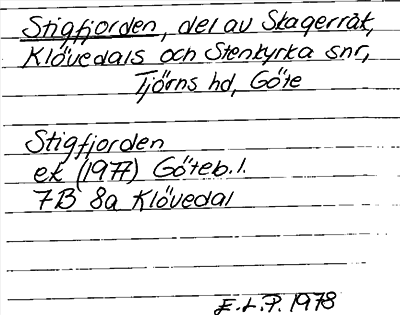 Stigfjorden, del av Skagerråk,
Klövedals och Stenkyrka snr,
Tjörns hd, Göte
Stigfjorden
ek (1977) Göteb. l.
7B 8a Klövedal
E.L.P. 1978